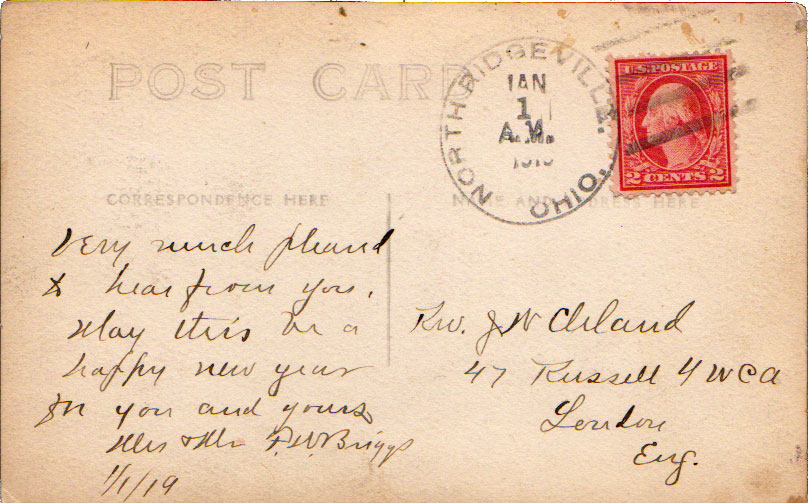 POST CARD
NORTH RIDGEVILLE, OHIO.
JAN
1
A.M.
U.S. POSTAGE
2 CENTS 2
CORRESPONDENCE HERE
NAME AND ADDRESS HERE
Very much pleased
to hear from you.
May this be a
happy new year
for you and yours
Mrs & Mr Briggs
1/1/19
Rev. J W Cleland
47 Russell YWCA
London
Eng.